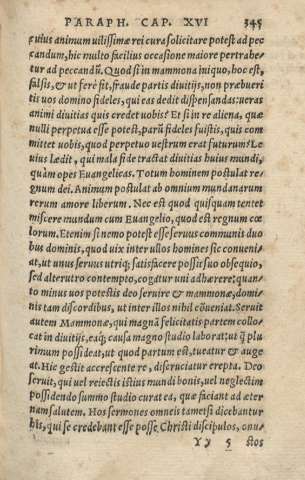 PARAPH. CAP. XVI 345
cuius animum uilissimæ rei cura solicitare potest ad pec
candum, hic multo facilius occasione maiore pertrahe-
tur ad peccandũ. Quod si in mammona iniquo, hoc est,
falsis, & ut ferè fit, fraude partis diuitijs, non præbueri
tis uos domino fideles, qui eas dedit dispensandas: ueras
animi diuitias quis credet uobis? Et si in re aliena, quæ
nulli perpetua esse potest, parũ fideles fuistis, quis com
mittet uobis, quod perpetuo uestrum erat futurum? Le
uius lædit, qui mala fide tractat diuitias huius mundi,
quàm opes Euangelicas. Totum hominem postulat re-
gnum dei. Animam postulat ab omnium mundanarum
rerum amore liberum. Nec est quod quisquam tentet
miscere mundum cum Euangelio, quod est regnum cœ
lorum. Etenim si nemo potest esse seruus communis duo
bus dominis, quod uix inter ullos homines sic conueni-
at, ut unus seruus utriq; satisfacere possit suo obsequio,
sed alterutro contempto, cogatur uni adhærere: quan-
to minus uos potestis deo seruire & mammonæ, domi-
nis tam discordibus, ut inter illos nihil cõueniat. Seruit
autem Mammonæ, qui magnã felicitatis partem collo-
cat in diuitijs, eaq; causa magno studio laborat: ut q̃ plu
rimum possideat, ut quod partum est, tueatur & auge
at. Hic gestit accrescente re, discruciatur erepta. Deo
seruit, qui uel reiectis istius mundi bonis, uel neglectim
possidendo summo studio curat ea, quæ faciant ad æter
nam salutem. Hos sermones omneis tametsi dicebantur
his, qui se credebant esse posse Christi discipulos, onu-
Yy 5 stos